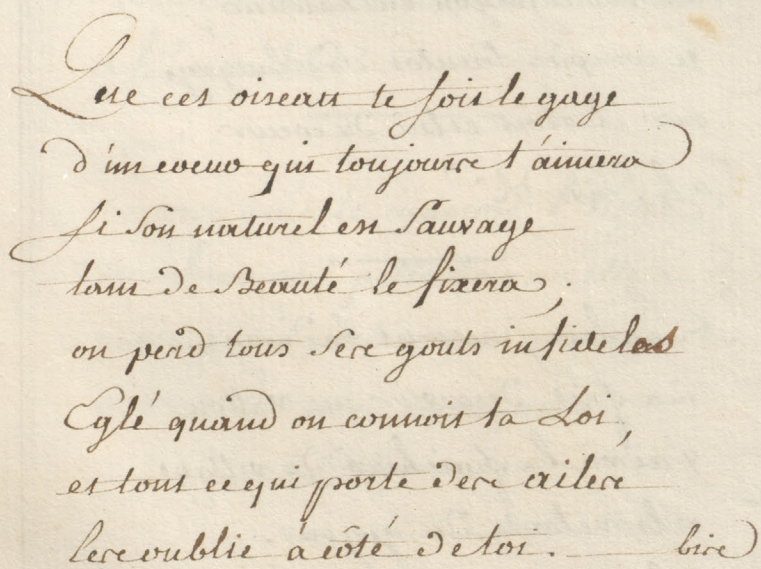 Que cet oiseau te soit le gage
d'un coeur qui toujours t'aimera
si son naturel est sauvage
tant de Beauté le fixera ;
on perd tous ses gouts infideles
Eglé quand on connoit ta Loi,
et tout ce qui porte des ailes
les oublie à côté de toi. bis